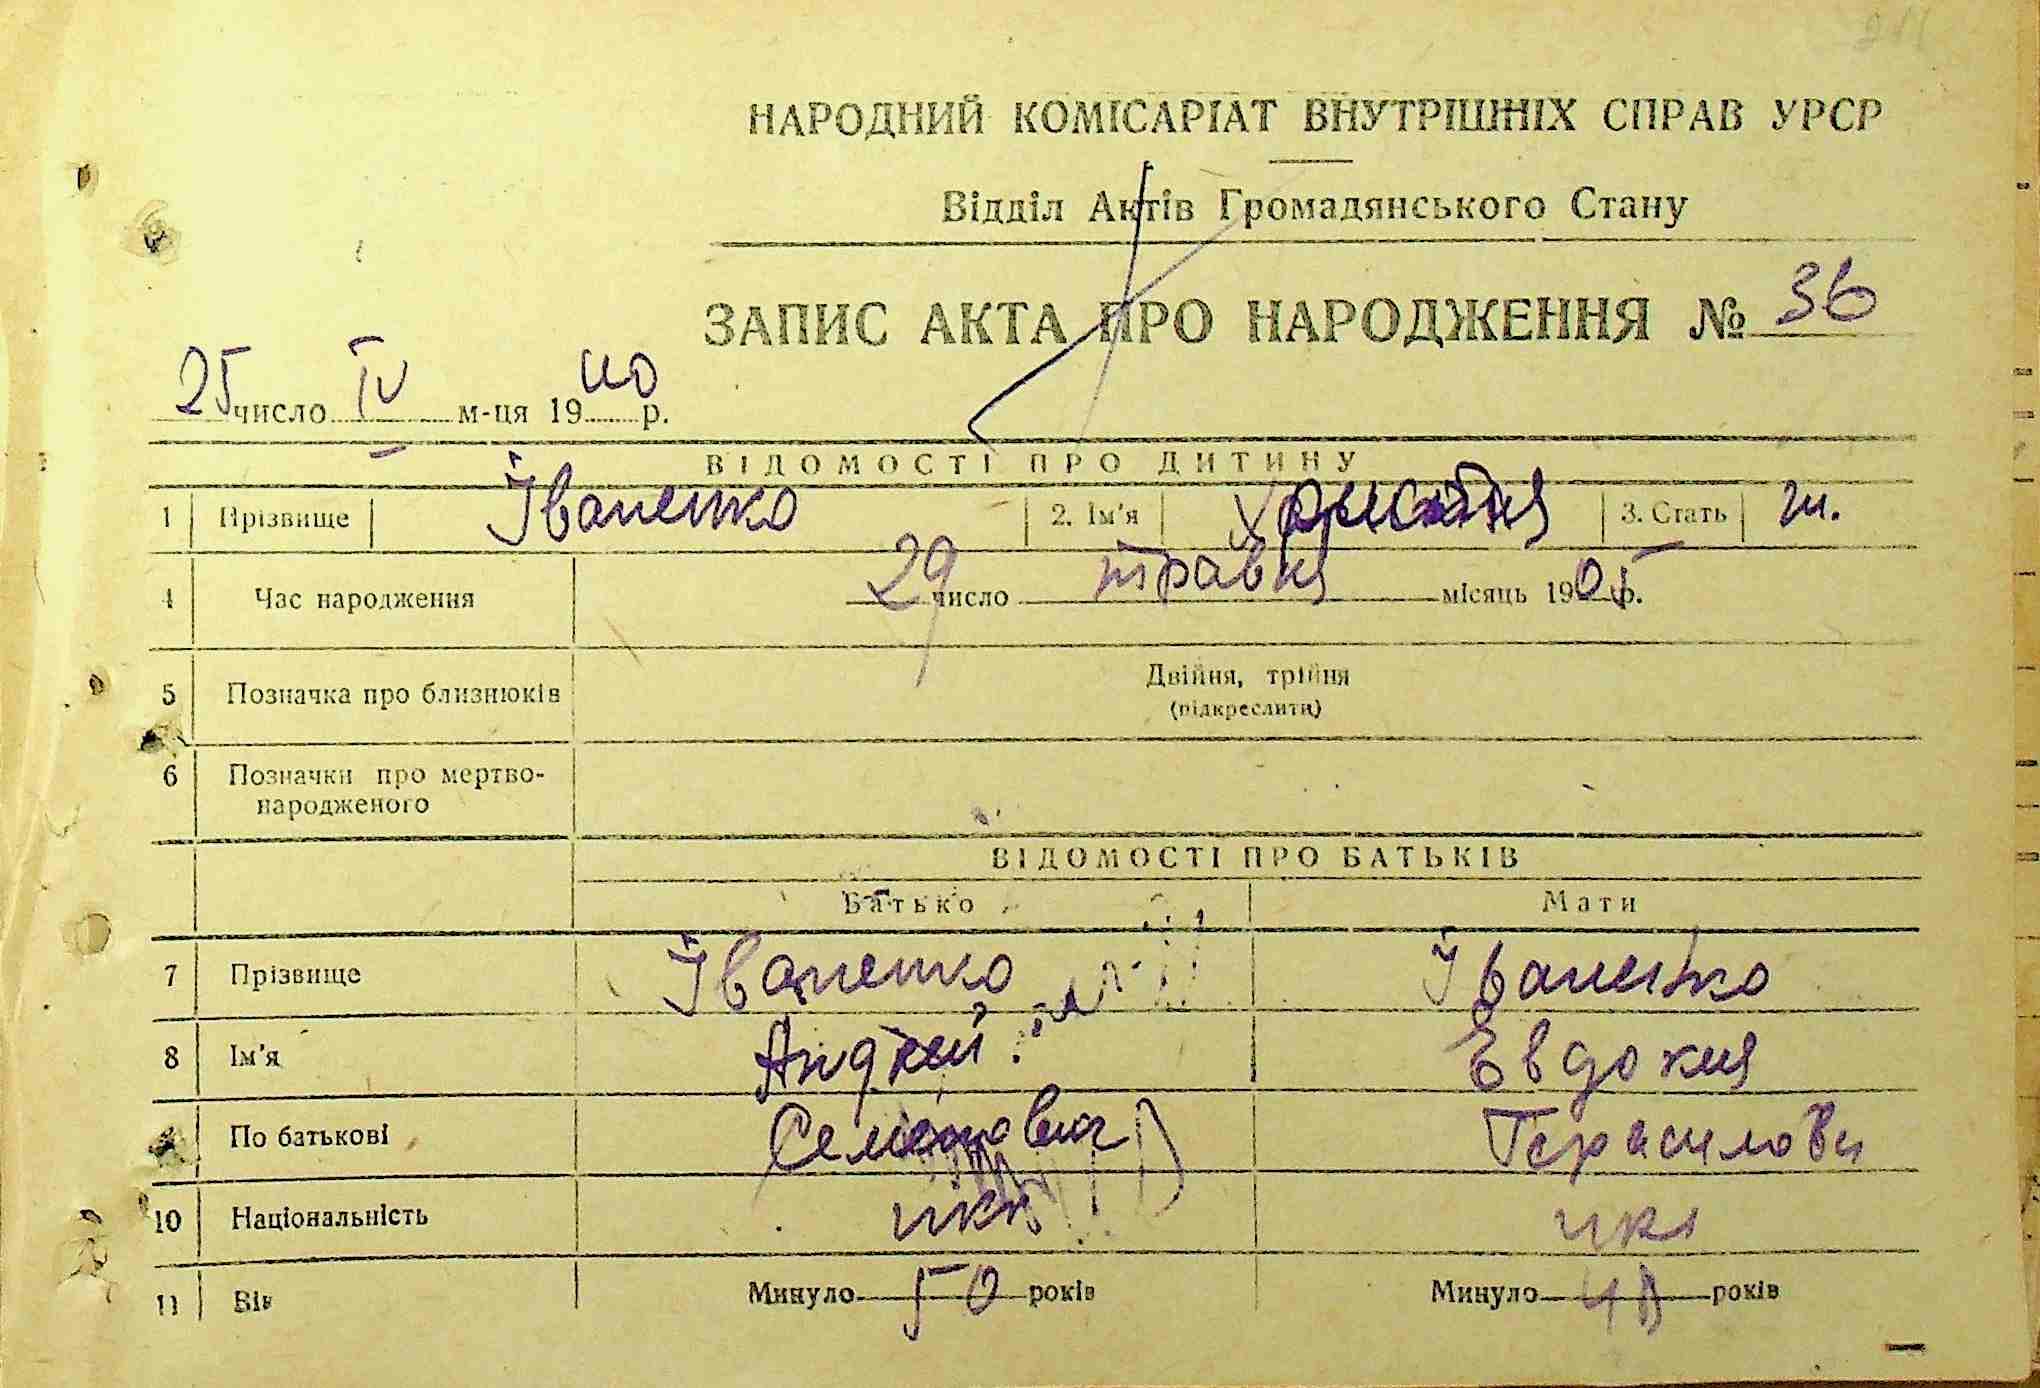 НАРОДНИЙ КОМІСАРІАТ ВНУТРІШНІХ СПРАВ УРСР
Відділ Актів Громадянського Стану
ЗАПИС АКТА ПРО НАРОДЖЕННЯ № 36
25 число IV м-ця 1940 р.
ВІДОМОСТІ ПРО ДИТИНУ
1 Прізвище Іваненко 2. Ім'я Христя 3. Стать ж.
4 Час народження 29 число травня місяць 1905 р.
5 Позначка про близнюків Двійня, трійня
(підкреслити)
6 Позначки про мертво-
народженого
ВІДОМОСТІ ПРО БАТЬКІВ
Батько Мати
7 Прізвище Іваненко Іваненко
8 Ім'я Андрей Евдокия
9 По батькові Семенович Герасимовн
10 Національність укр укр
11 Вік Минуло 50 років Минуло 48 років